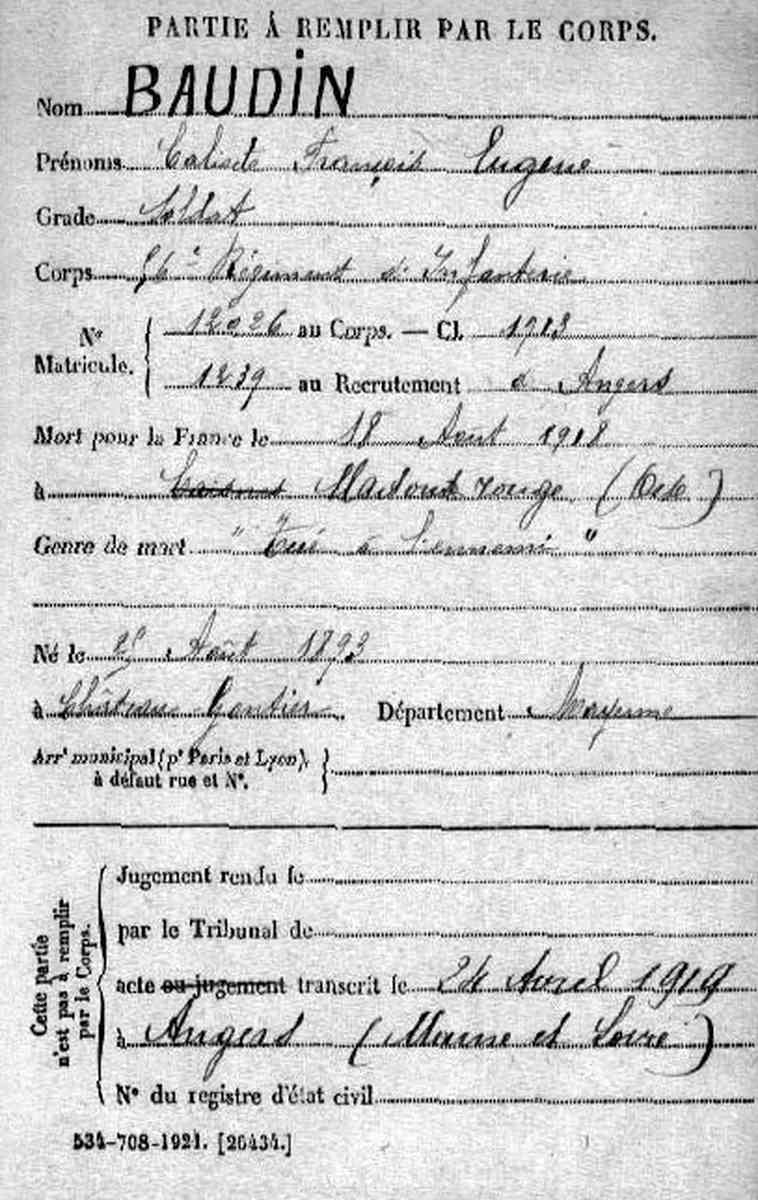 PARTIE À REMPLIR PAR LE CORPS.
Nom BAUDIN
Prénoms Calixte François Eugène
Grade Soldat
Corps Régiment d'Infanterie
N° Matricule. 12026 au Corps. — Cl. 1913
1239 au Recrutement d Angers
Mort pour la France le 18 Août 1918
à rouge (Oise)
Genre de mort " Tué à l'ennemi "
Né le Août 1893
à Château Gontier Département Mayenne
Arrt municipal (pr Paris et Lyon),
à défaut rue et N°.
Cette partie n'est pas à remplir par le Corps.
Jugement rendu le
par le Tribunal de
acte ou jugement transcrit le 24 Avril 1919
à Angers (Maine et Loire)
N° du registre d'état civil
534-708-1921. [26434.]